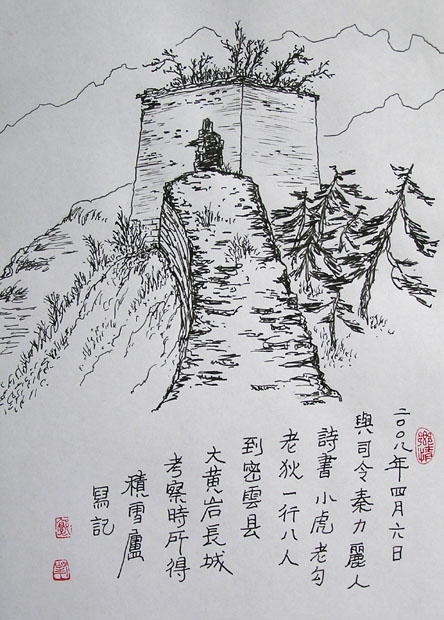 二〇〇八年四月六日
與司令秦力麗人
詩書小虎老勾
老狄一行八人
到密雲县
大黄岩長城
考察時所得
積雪廬
寫記